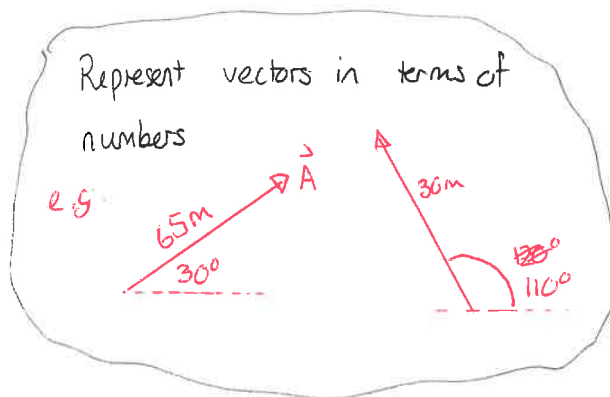 Represent vectors in terms of
numbers
e.g.
A
65m
30°
30m
110°